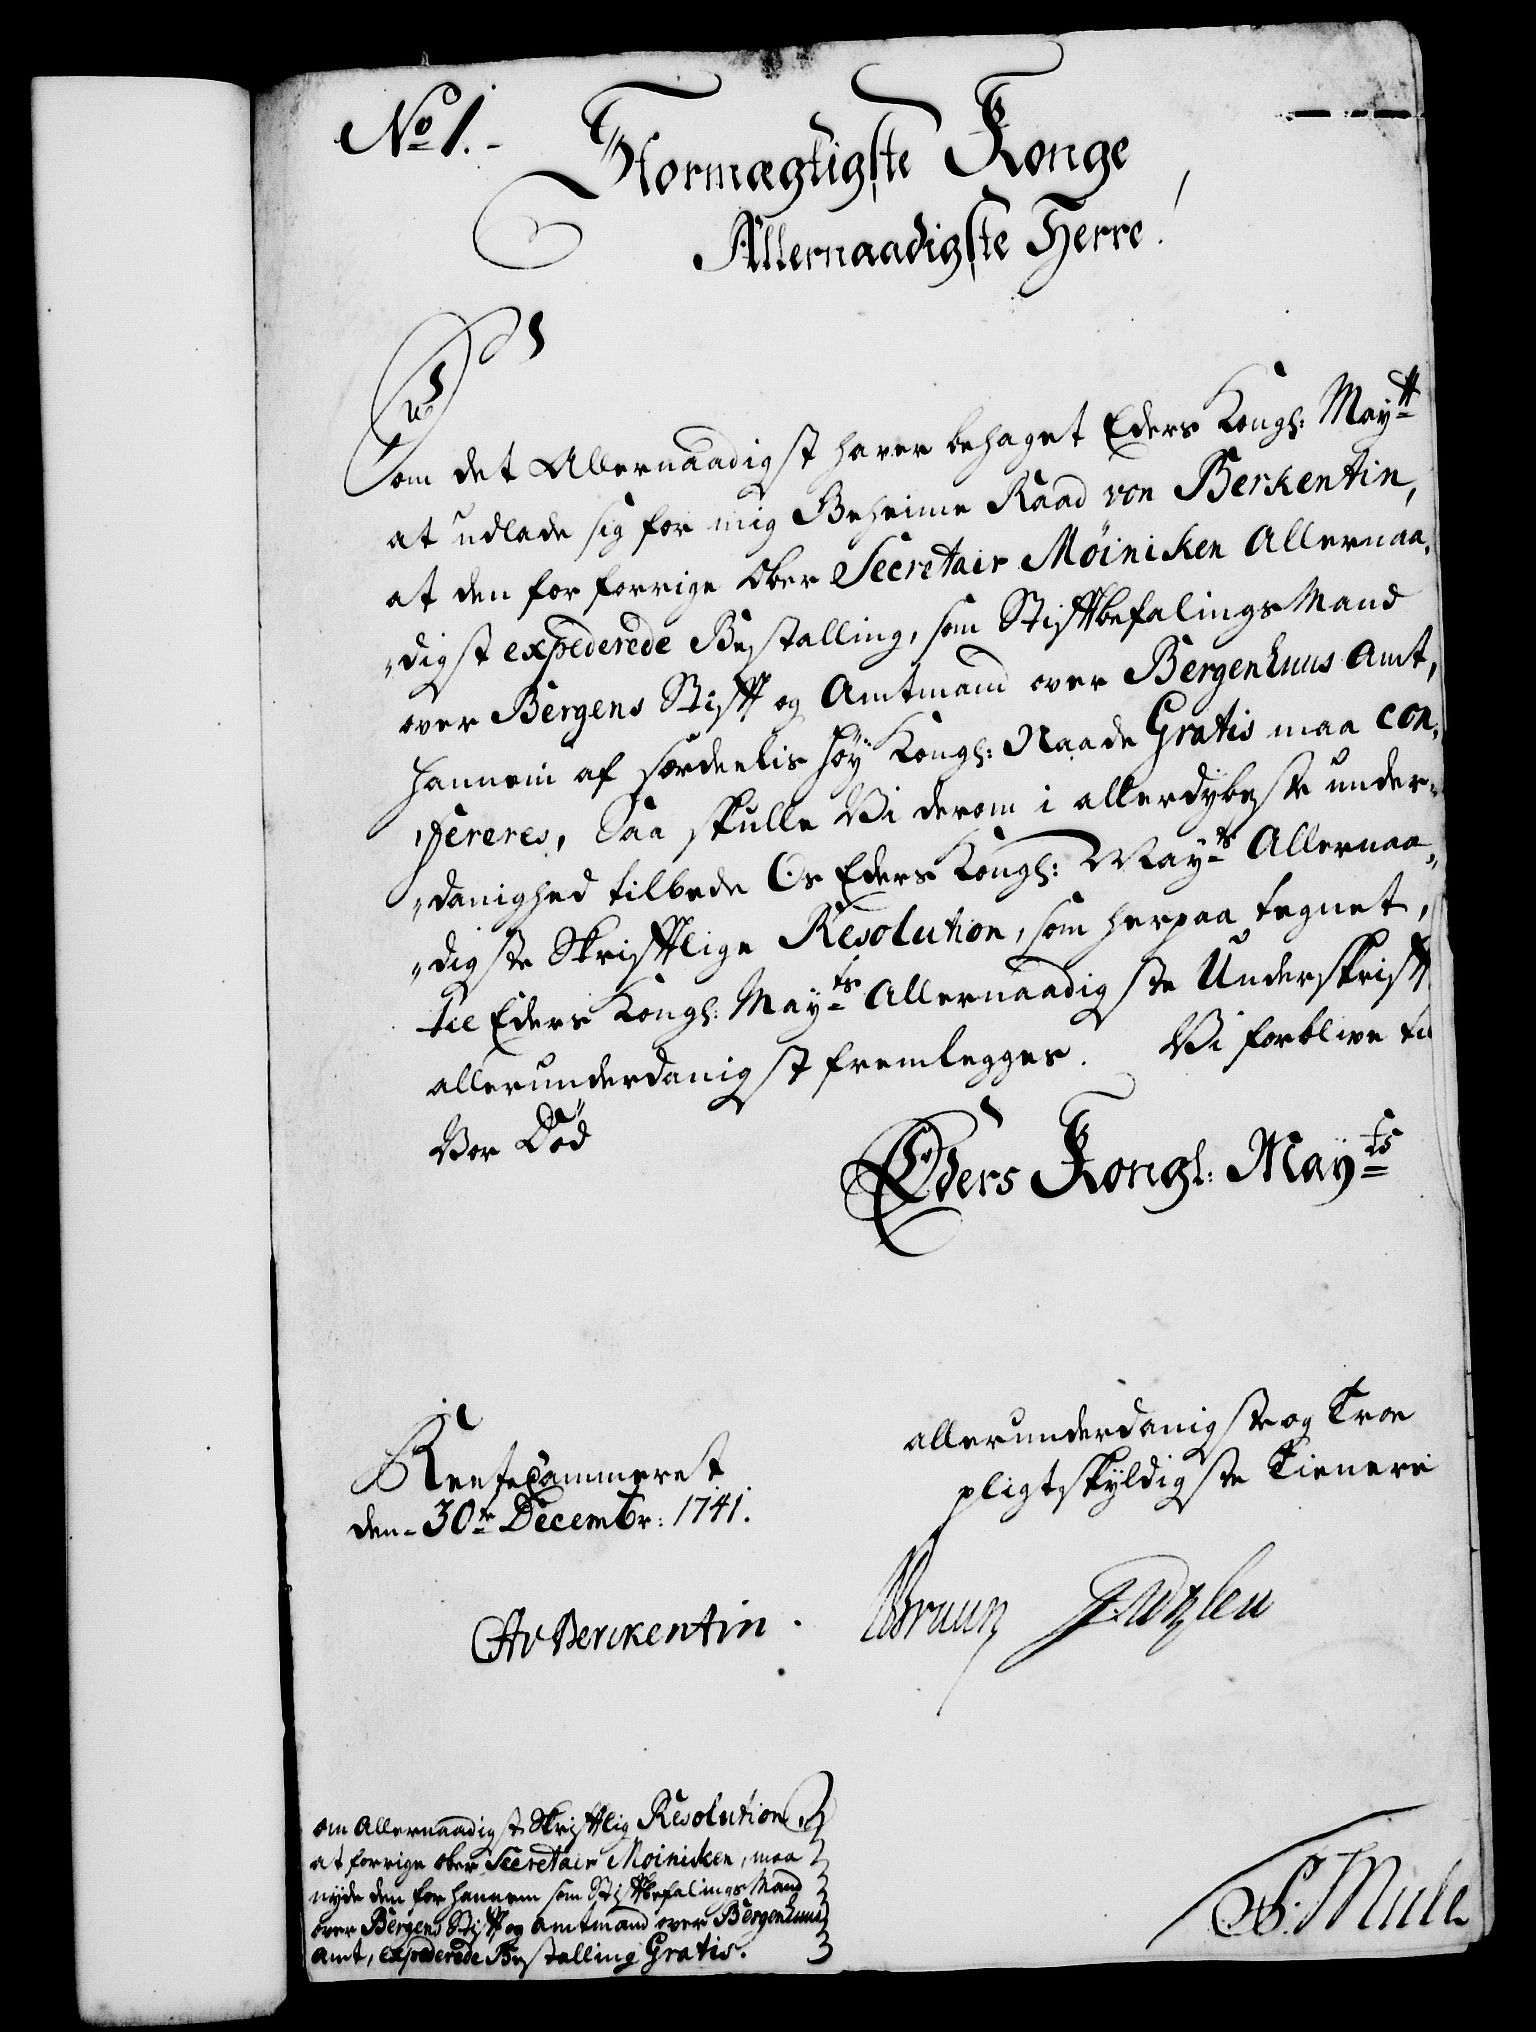 No 1.
Stormægtigste Konge
Allernaadigste Herre!
Som det Allernaadigst haver behaget Eders Kongl: Maytt
at udlade sig for mig Geheime Raad von Berkentin,
at den for forrige Ober Secretair Möiniken Allernaa„
„digst expederede Bestalling, som StifftbefalingsMand
over Bergens Stifft og Amtmand over Bergenhuus Amt,
hannem af særdeelis høy Kongl: Naade Gratis maa con„
„fereres, Saa skulle Vi derom i allerdybeste under„
„danighed tilbede Os Eders Kongl: Mayts Allernaa„
„digste Skrifftlige Resolution, som herpaa tegnet,
til Eders Kongl: Mayts Allernaadigste Underskrifft
allerunderdanigst fremlegges. Vi forblive til
Vor Död
Eders Kongl: Mayts
allerunderdanigste og Troe
pligtskyldigste Tienere
RenteCammeret
den 30te Decembr: 1741.
CAvBerckentin.
Braun
S: Mule
Om Allernaadigst Skrifftlig Resolution,
at forrige Ober Secretair Moiniken, maa
nyde den for hannem som StifftbefalingsMand
over Bergens Stifft og Amtmand over Bergenhuus
Amt, expederede Bestalling Gratis.